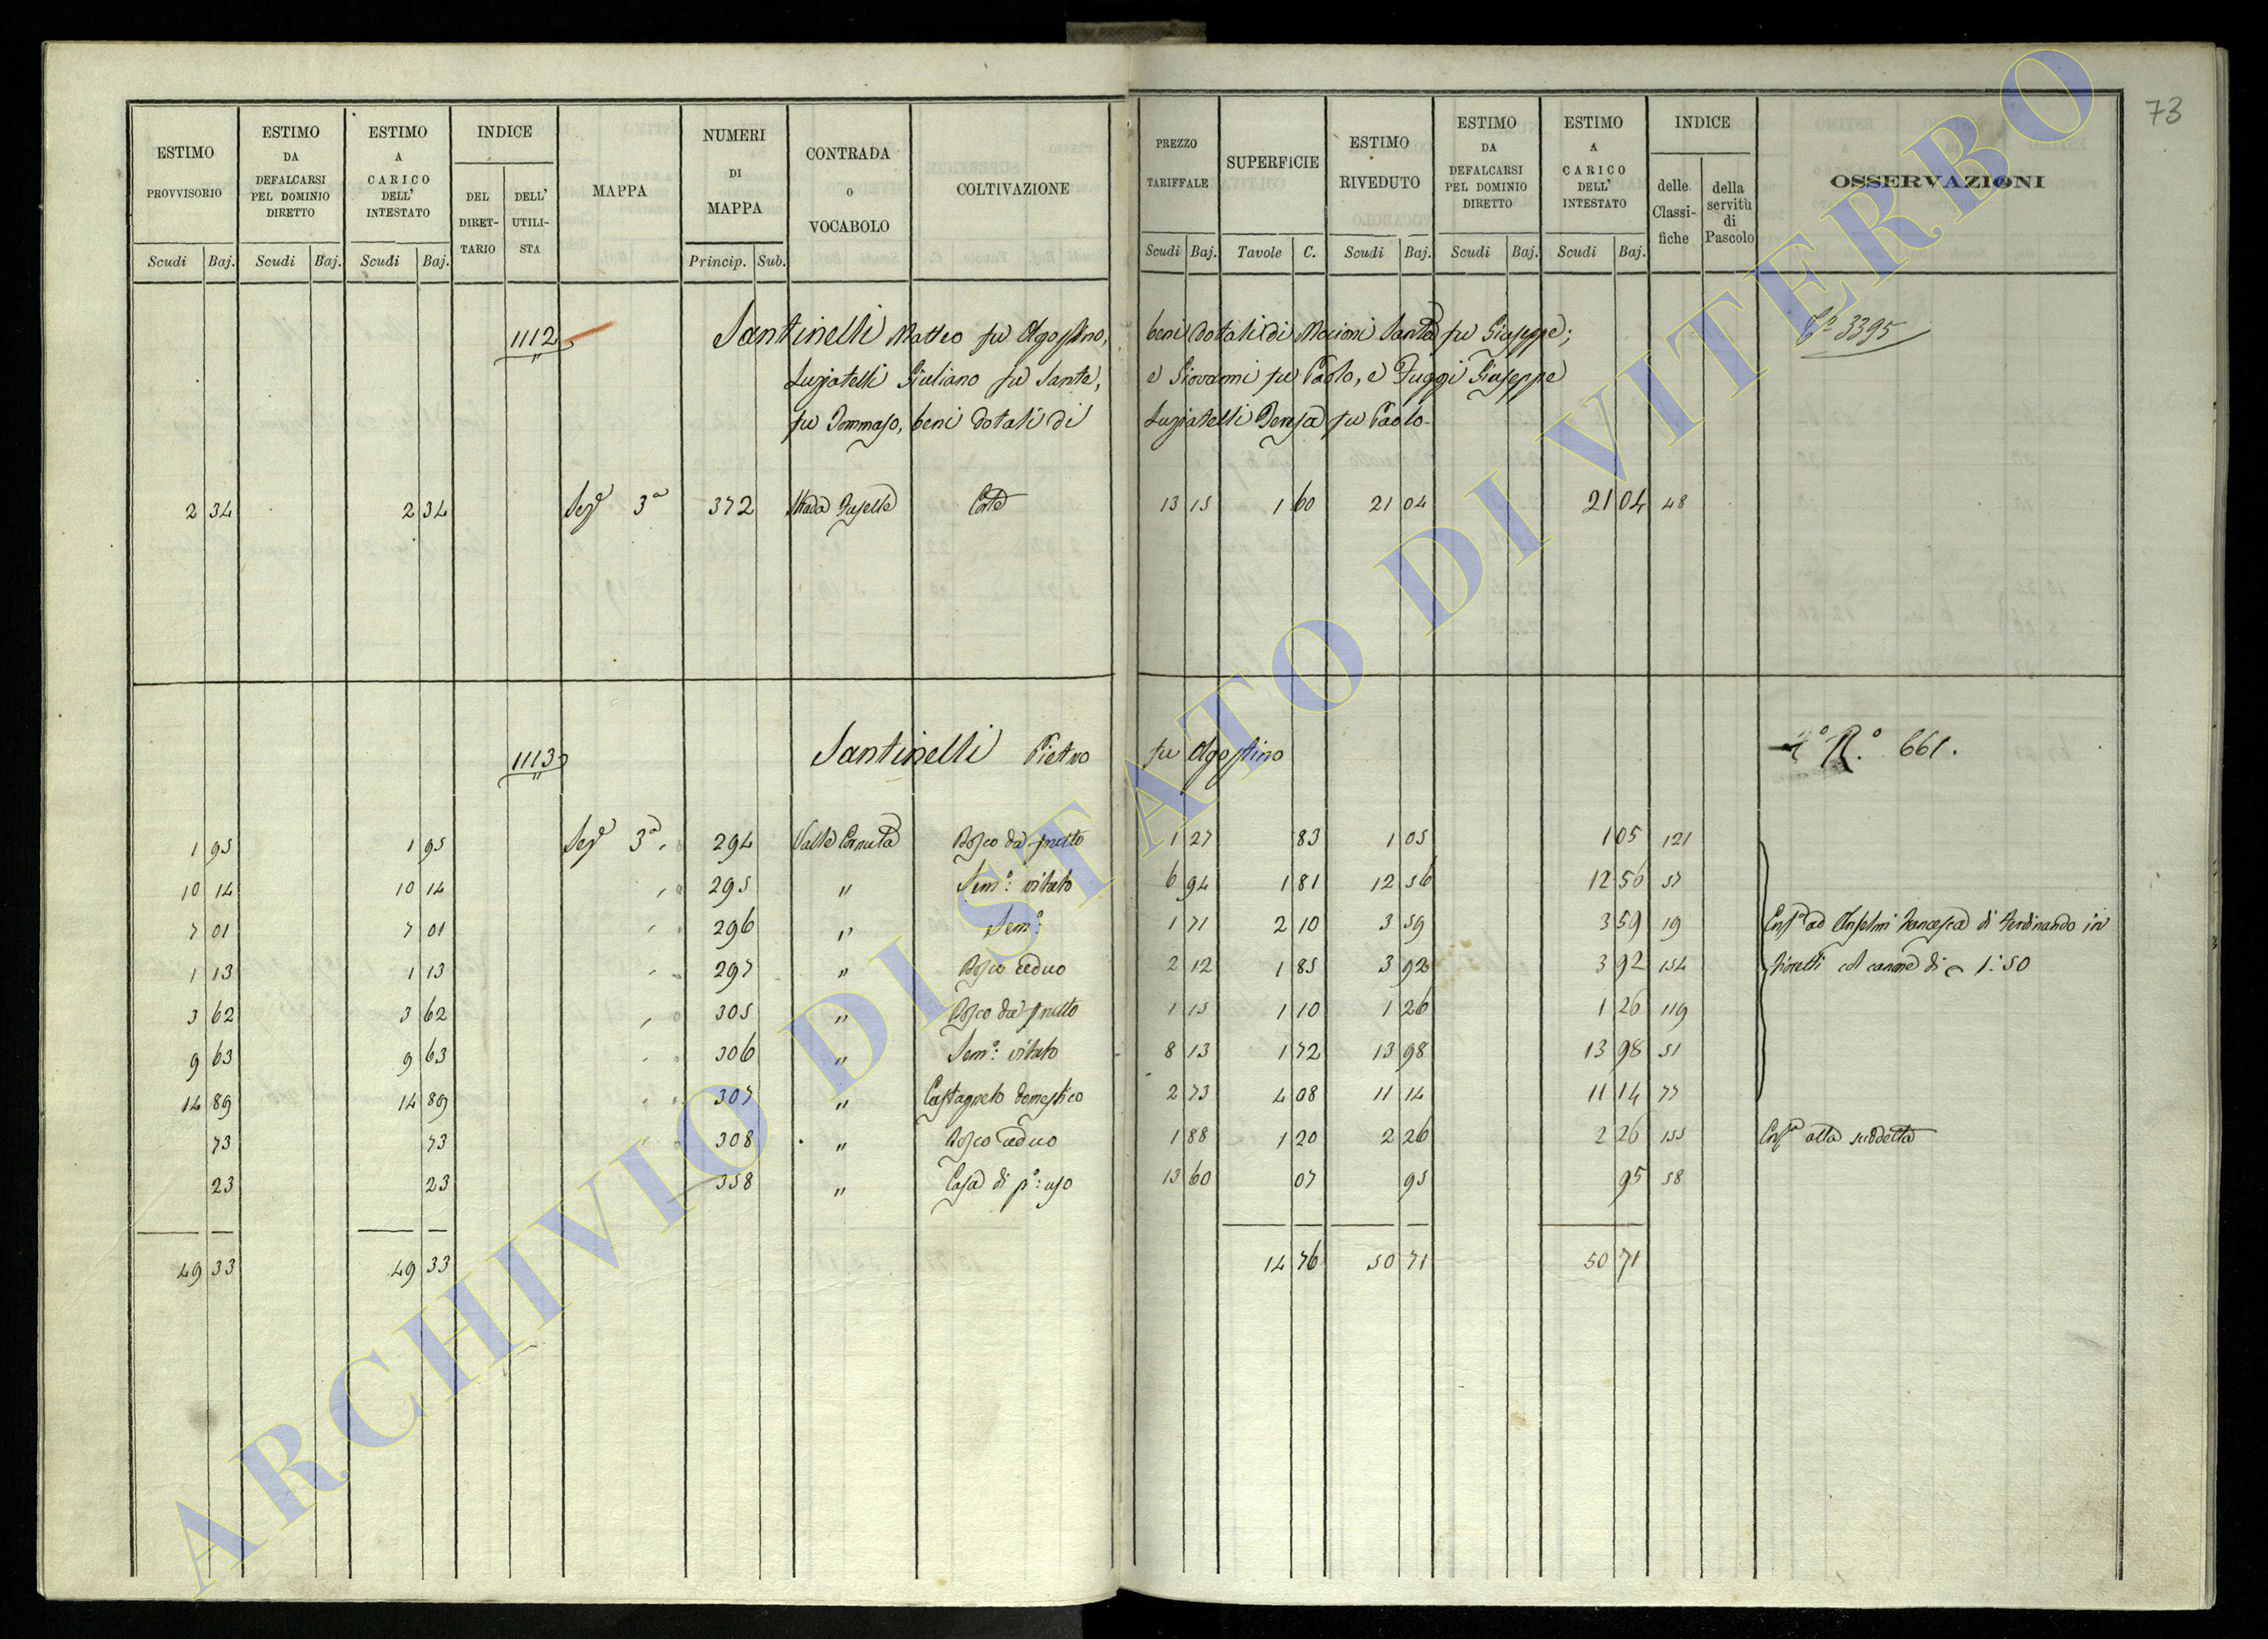 73
ESTIMO PROVVISORIO | ESTIMO DA DEFALCARSI PEL DOMINIO DIRETTO | ESTIMO A CARICO DELL' INTESTATO | INDICE | MAPPA | NUMERI DI MAPPA | CONTRADA O VOCABOLO | COLTIVAZIONE | PREZZO TARIFFALE | SUPERFICIE | ESTIMO RIVEDUTO | ESTIMO DA DEFALCARSI PEL DOMINIO DIRETTO | ESTIMO A CARICO DELL' INTESTATO | INDICE | OSSERVAZIONI
DEL DIRET-TARIO | DELL' UTILI-STA | delle Classi-fiche | della servitù di Pascolo
Scudi | Baj. | Scudi | Baj. | Scudi | Baj. | Princip. | Sub. | Scudi | Baj. | Tavole | C. | Scudi | Baj. | Scudi | Baj. | Scudi | Baj.
1112 Santinelli Matteo fu Agostino, beni dotali di Santa fu Giuseppe; 3395
Giuliano fu Sante, e Giovanni fu Paolo, e Fuggi Giuseppe
fu Tommaso, beni dotali di Teresa fu Paolo
2 34 | 2 34 | Sez.e 3a | 372 | Strada | Corte | 13 15 | 1 60 | 21 04 | 21 04 | 48
1113 Santinelli Pietro fu Agostino R.o 661.
1 95 | 1 95 | Sez.e 3a | 294 | Valle Cornuta | Bosco da frutto | 1 27 | 83 | 1 05 | 1 05 | 121
10 14 | 10 14 | 295 | " | Sem.o: vitato | 6 94 | 1 81 | 12 56 | 12 56 | 57
7 01 | 7 01 | 296 | " | Sem.o: | 1 71 | 2 10 | 3 59 | 3 59 | 19 | Enf.a ad Anselmi Francesca di Ferdinando in
1 13 | 1 13 | 297 | " | Bosco ceduo | 2 12 | 1 85 | 3 92 | 3 92 | 154 | Fioretti col canone di 1:50
3 62 | 3 62 | 305 | " | Bosco da frutto | 1 15 | 1 10 | 1 26 | 1 26 | 119
9 63 | 9 63 | 306 | " | Sem.o: vitato | 8 13 | 1 72 | 13 98 | 13 98 | 51
14 89 | 14 89 | 307 | " | Castagneto domestico | 2 73 | 4 08 | 11 14 | 11 14 | 77
73 | 73 | 308 | " | Bosco ceduo | 1 88 | 1 20 | 2 26 | 2 26 | 155 | Enf.a alla suddetta
23 | 23 | 358 | " | Casa di p.o: uso | 13 60 | 07 | 95 | 95 | 58
49 33 | 49 33 | 14 76 | 50 71 | 50 71
ARCHIVIO DI STATO DI VITERBO